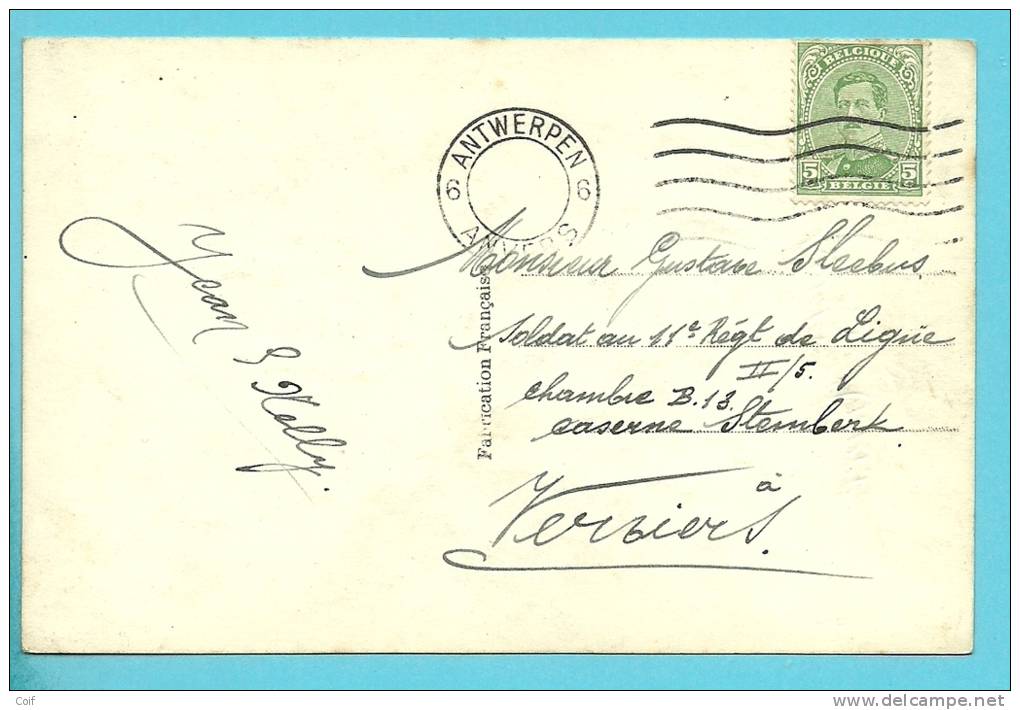 BELGIQUE
5 5
BELGIË
ANTWERPEN
6 6
ANVERS
Monsieur Gustave Sleebus
Soldat au 11e Régt de Ligne
II/5.
chambre B.13.
caserne Stembert
à
Verviers.
Fabrication Française
Jean & Nelly.
Coif
www.delcampe.net